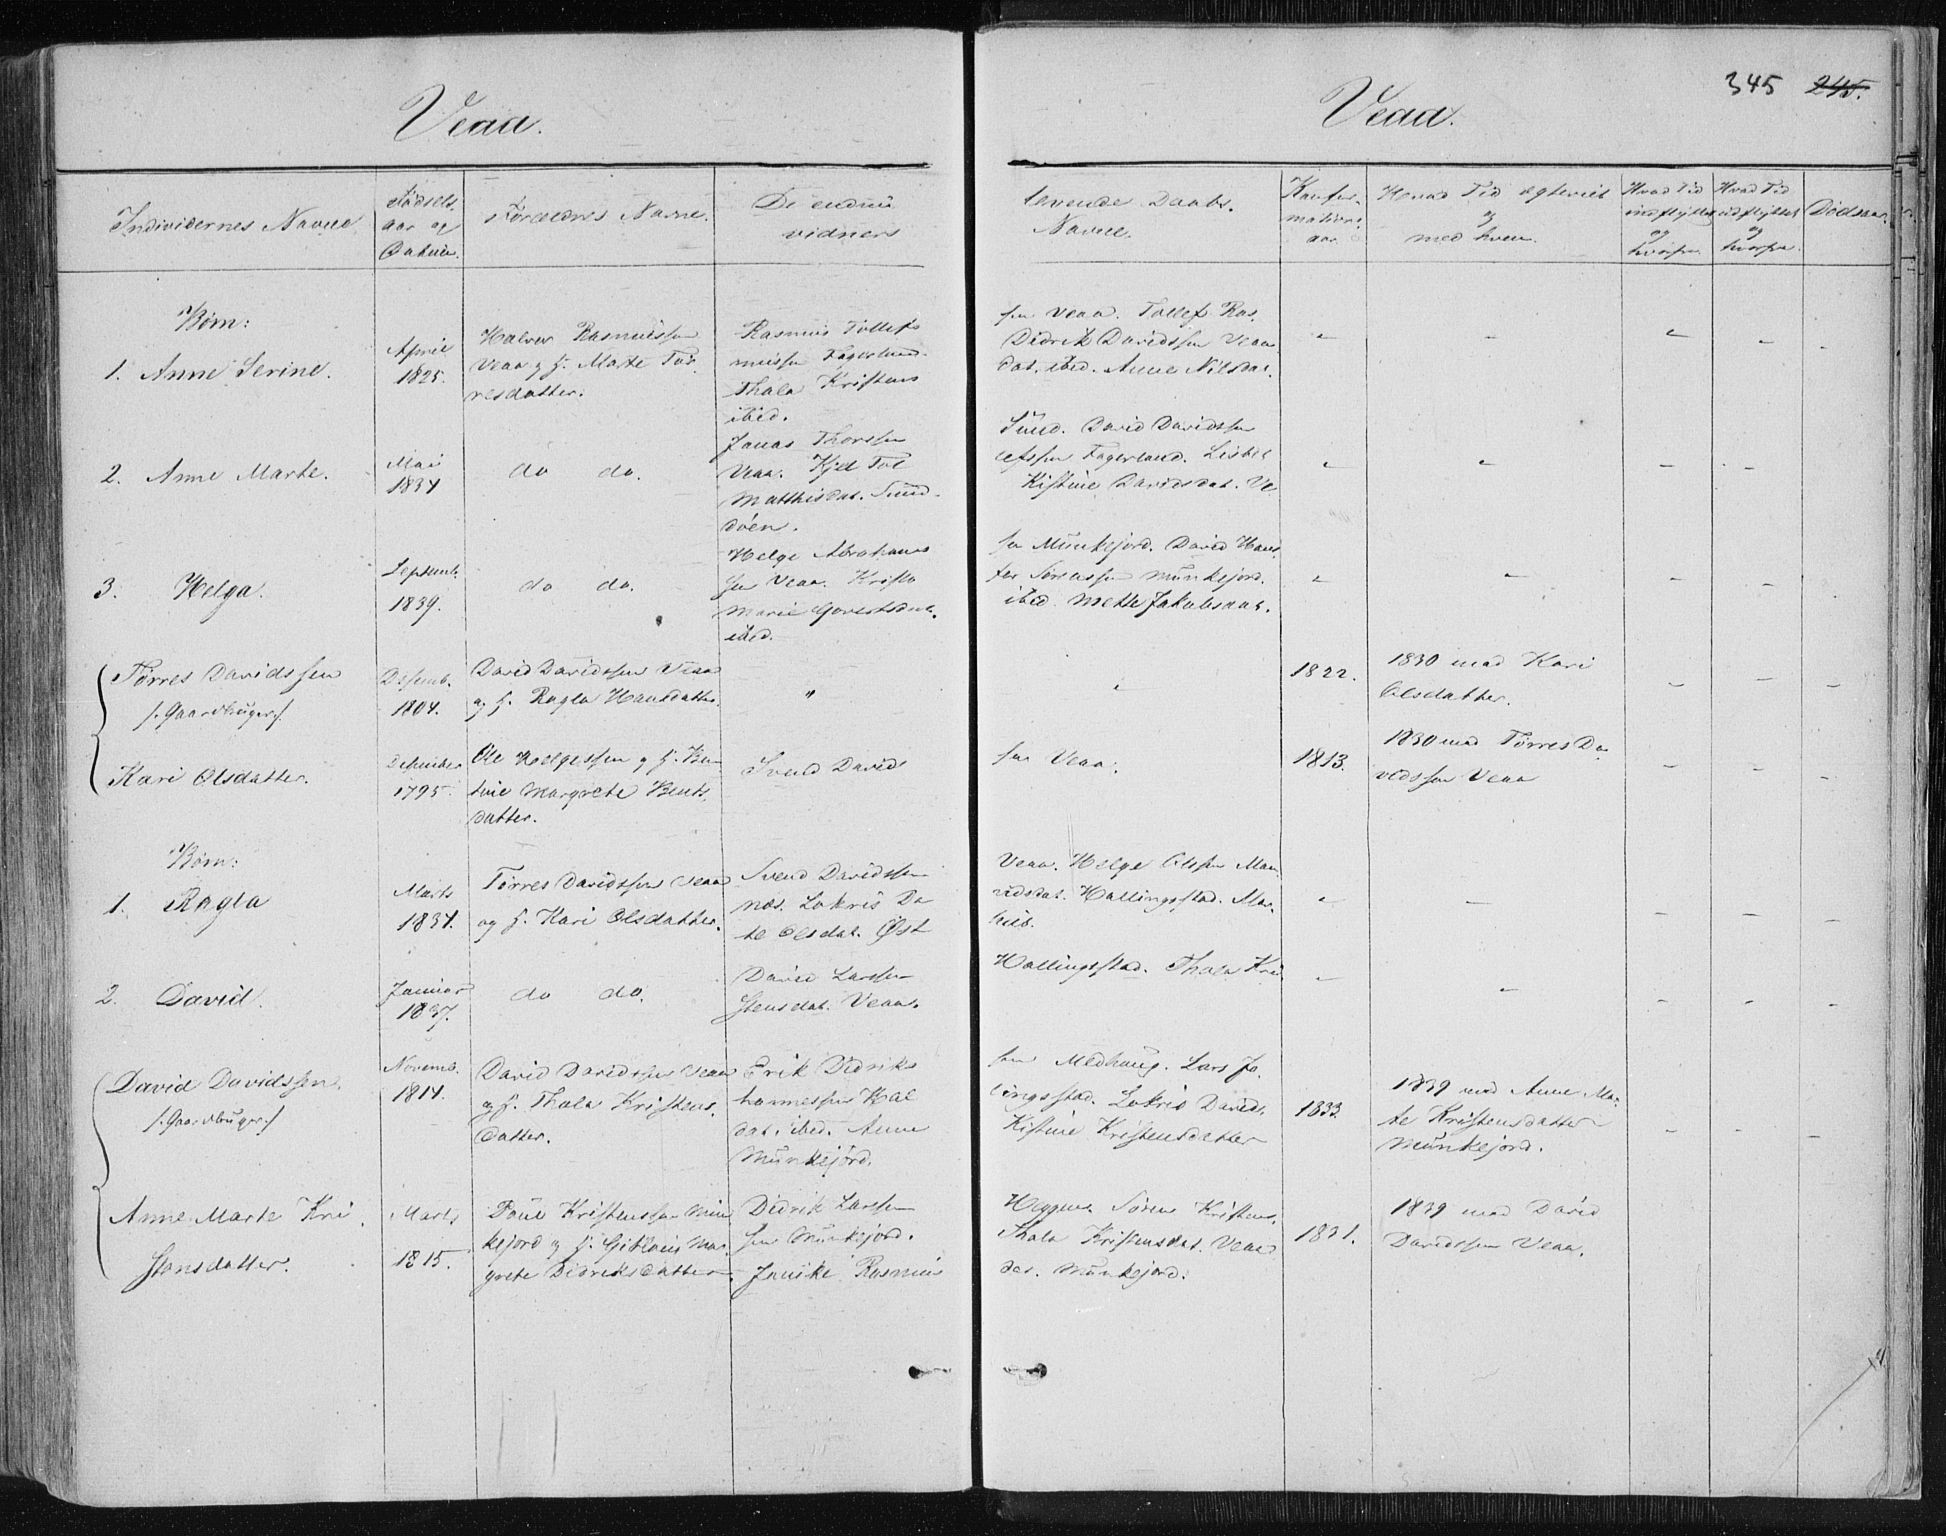 Veaa.
Individernes Navne
Fødsels
aar og
Datum.
Forældres Navne.
De endnu
vidners
Børn:
1. Anne Serine.
April
1825.
Halvor Rasmussen
Veaa og H. Marte Tør
resdatter.
Rasmus Tollefs
mussen Fagerland.
Thala Kristens
ibid.
2. Anne Marte.
Mai
1834
do do.
Jonas Thorsen
Veaa. Kjel Tol
Matthisdat. Sund
døen.
3. Helga.
Septemb.
1839.
do do.
Helge Abrahams
sen Veaa. Kristo
Marie Govertsdat.
ibid.
Tørres Davidssen
/: Gaardbruger :/
Desemb.
1804.
David Davidssen Veaa
og H. Ragla Hansdatter.
"
Kari Olsdatter.
Desember
1795.
Ole Helgessen og H.
tine Margrete Bents
datter.
Svend Davids
Børn:
1. Ragla
Marts
1834.
Tørres Davidssen Veaa
og H. Kari Olsdatter.
Svend Davidssen
næs. Lokris Da
te Olsdat. Øst
2. David.
Januar
1837.
do do.
David Larssen
stensdat. Veaa.
David Davidssen.
/: Gaardbruger :/
Novemb.
1814.
David Davidssen Veaa
og H. Thala Kristens
datter.
Erik Didriks
hannessen Hal
dat. ibid. Anne
Munkejord.
Anne Marte Kri
stensdatter.
Marts
1815.
Poul Kristenssen Mun
kejord og H. Mar
grete Didriksdatter.
Didrik Larssen
sen Munkejord.
Janike Rasmus
345 245.
Veaa.
levende Daabs.
Navne.
Konfir
mations
aar.
Hvad Tid ægteviet
og
med hvem.
Hvad Tid
indflyttet
og
hvorfra.
Hvad Tid
udflyttet
og
hvorfra.
Dødsaar
sen Veaa. Tollef Ras
Didrik Davidssen Veaa
dat. ibid. Anne Nilsdat.
Sund. David Davidssen
lefssen Fagerland. Lisbet
Kistine Davidsdat. Ve
sen Munkejord. David Hans
fer Sørenssen Munkejord.
ibid. Mette Jakobsdat.
1822.
1830 med Kari
Olsdatter.
sen Veaa.
1813.
1830 med Tørres Da
vidssen Veaa
Veaa. Helge Olssen Man
vidsdat. Hallingstad. Mar
Hallingstad. Thala Kri
sen Medhaug. Lars Jo
lingsstad. Lokris Davids
Kistine Kristensdatter
1833.
1839 med Anne Mar
te Kristensdatter
Munkejord.
Heggnes Søren Kristens
Thala Kristensdat. Veaa
dat. Munkejord.
1831.
1839 med David
Davidssen Veaa.